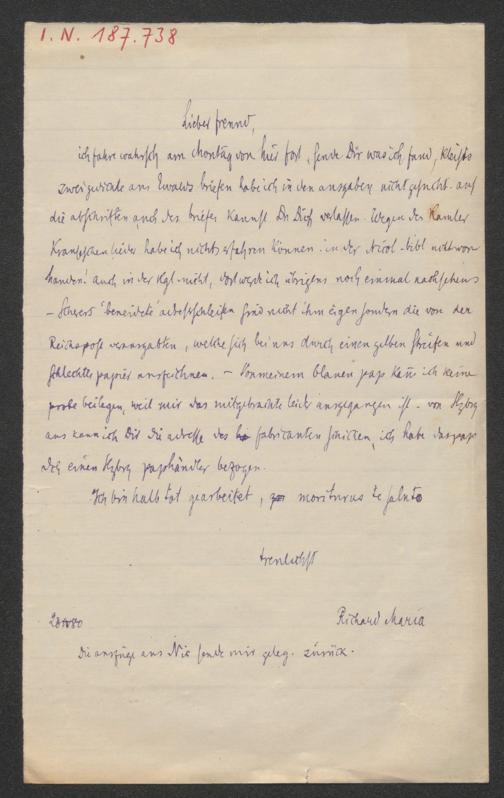 I. N. 187.738
Lieber freund,
ich fahre wahrsch am Montag von hier fort, sende Dir was ich fand, Kleists
zwei gedichte aus Ewalds briefen habe ich in den ausgaben nicht gesucht. auf
die abschriften auch des briefes kannst Du Dich verlassen. Wegen der Ramler
Krauseschen lieder habe ich nichts erfahren können. in der Nicol. bibl nicht vor
handen! auch in der Kgl. nicht, dort werde ich übrigens noch einmal nachsehen
– Scherers "beneidete" adressschleifen sind nicht ihm eigen sondern die von der
Reichspost verausgabten, welche sich bei uns durch einen gelben streifen und
schlechtes papier auszeichnen. – Von meinem blauen pap kann ich keine
probe beilegen, weil mir das mitgebrachte leider ausgegangen ist. von Szbrg
aus kann ich Dir die adresse des fabricanten schicken, ich habe das pap
dch einen Szbrg paphändler bezogen.
Ich bin halb tot gearbeitet, moriturus te salutо
treulichst
Richard Maria
die auszüge aus Nic sende mir geleg. zurück.